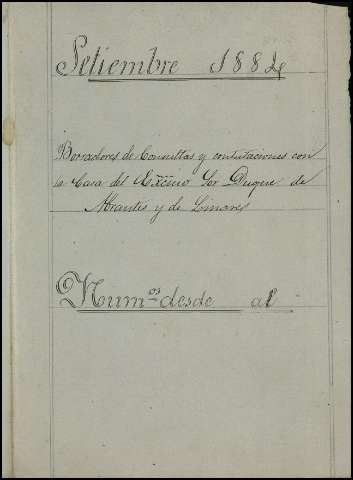 Setiembre 1884
Borradores de Consultas y contestaciones con
la Casa del Excmo Sor Duque de
Abrantes y de Linares
Numos desde al